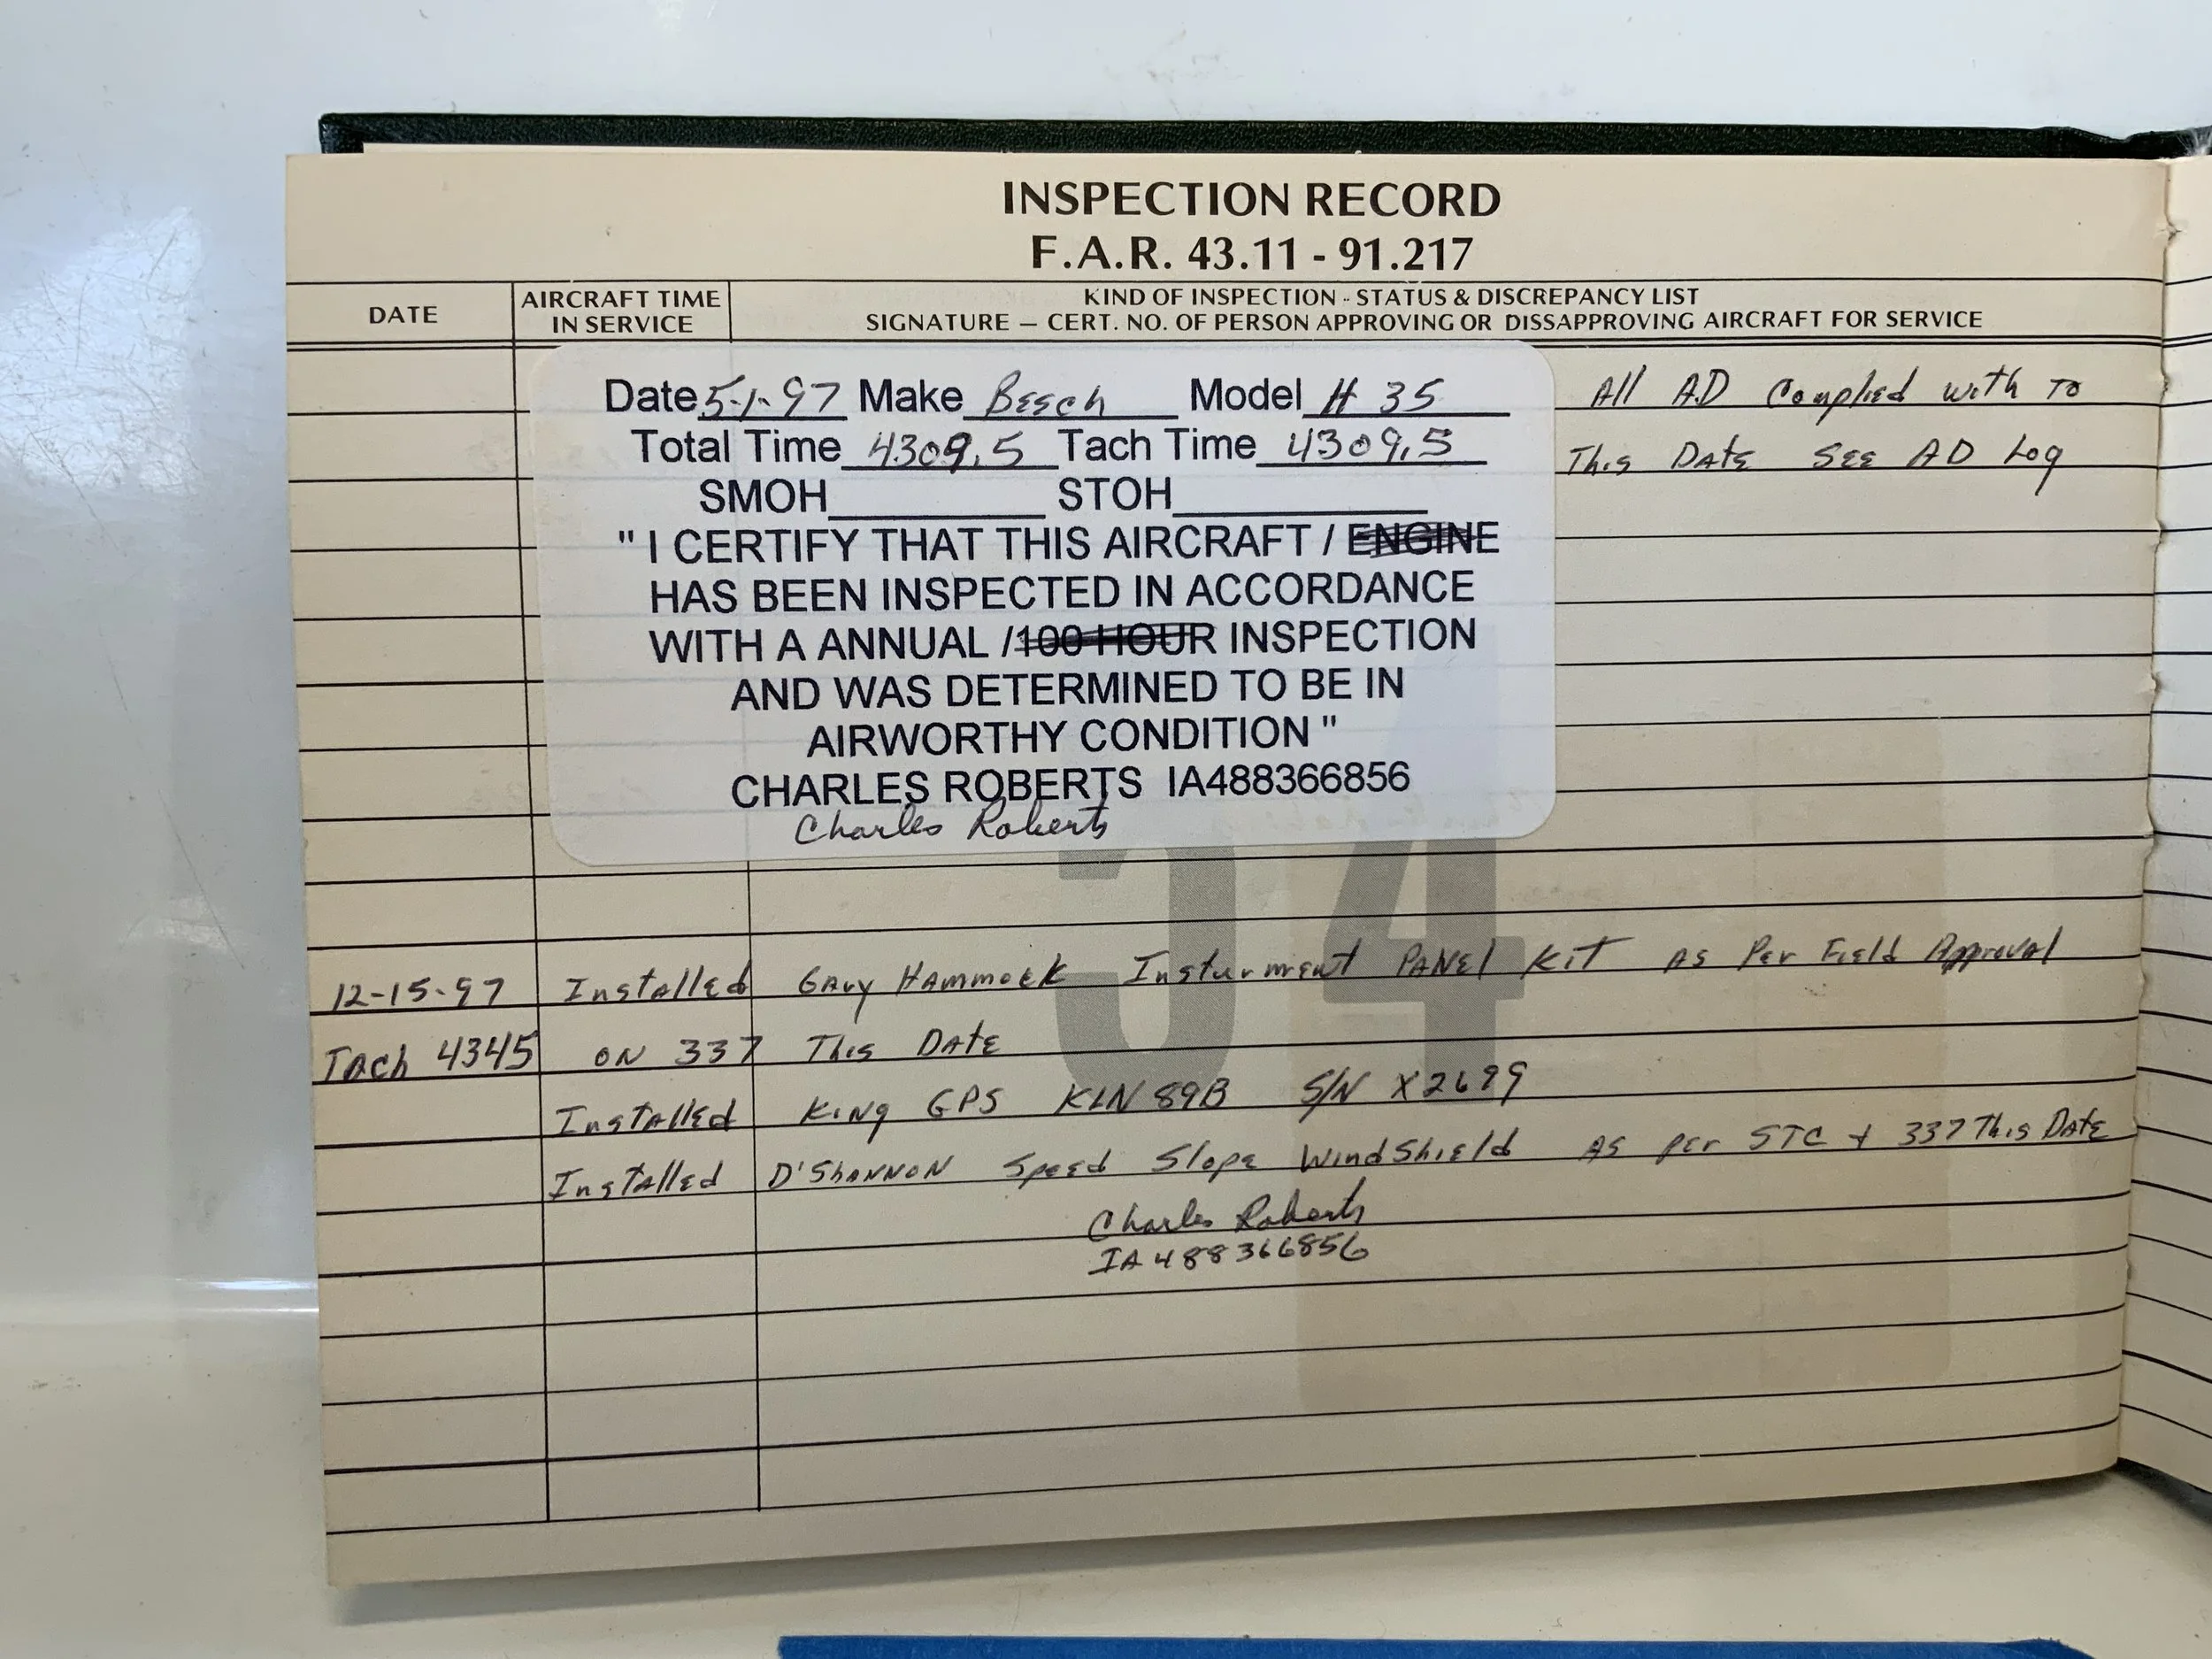 INSPECTION RECORD
F.A.R. 43.11 - 91.217
DATE
AIRCRAFT TIME
IN SERVICE
KIND OF INSPECTION - STATUS & DISCREPANCY LIST
SIGNATURE — CERT. NO. OF PERSON APPROVING OR DISSAPPROVING AIRCRAFT FOR SERVICE
Date 5-1-97 Make Beech Model H 35
Total Time 4309.5 Tach Time 4309.5
SMOH STOH
" I CERTIFY THAT THIS AIRCRAFT / ENGINE
HAS BEEN INSPECTED IN ACCORDANCE
WITH A ANNUAL / 100 HOUR INSPECTION
AND WAS DETERMINED TO BE IN
AIRWORTHY CONDITION "
CHARLES ROBERTS IA488366856
Charles Roberts
All AD Complied with To
This Date See AD Log
54
12-15-97 Installed Gary Hammock Insturment Panel Kit as Per Field Approval
Tach 4345 on 337 This Date
Installed King GPS KLN 89B S/N X2699
Installed D'Shannon Speed Slope Windshield as per STC + 337 This Date
Charles Roberts
IA 488366856